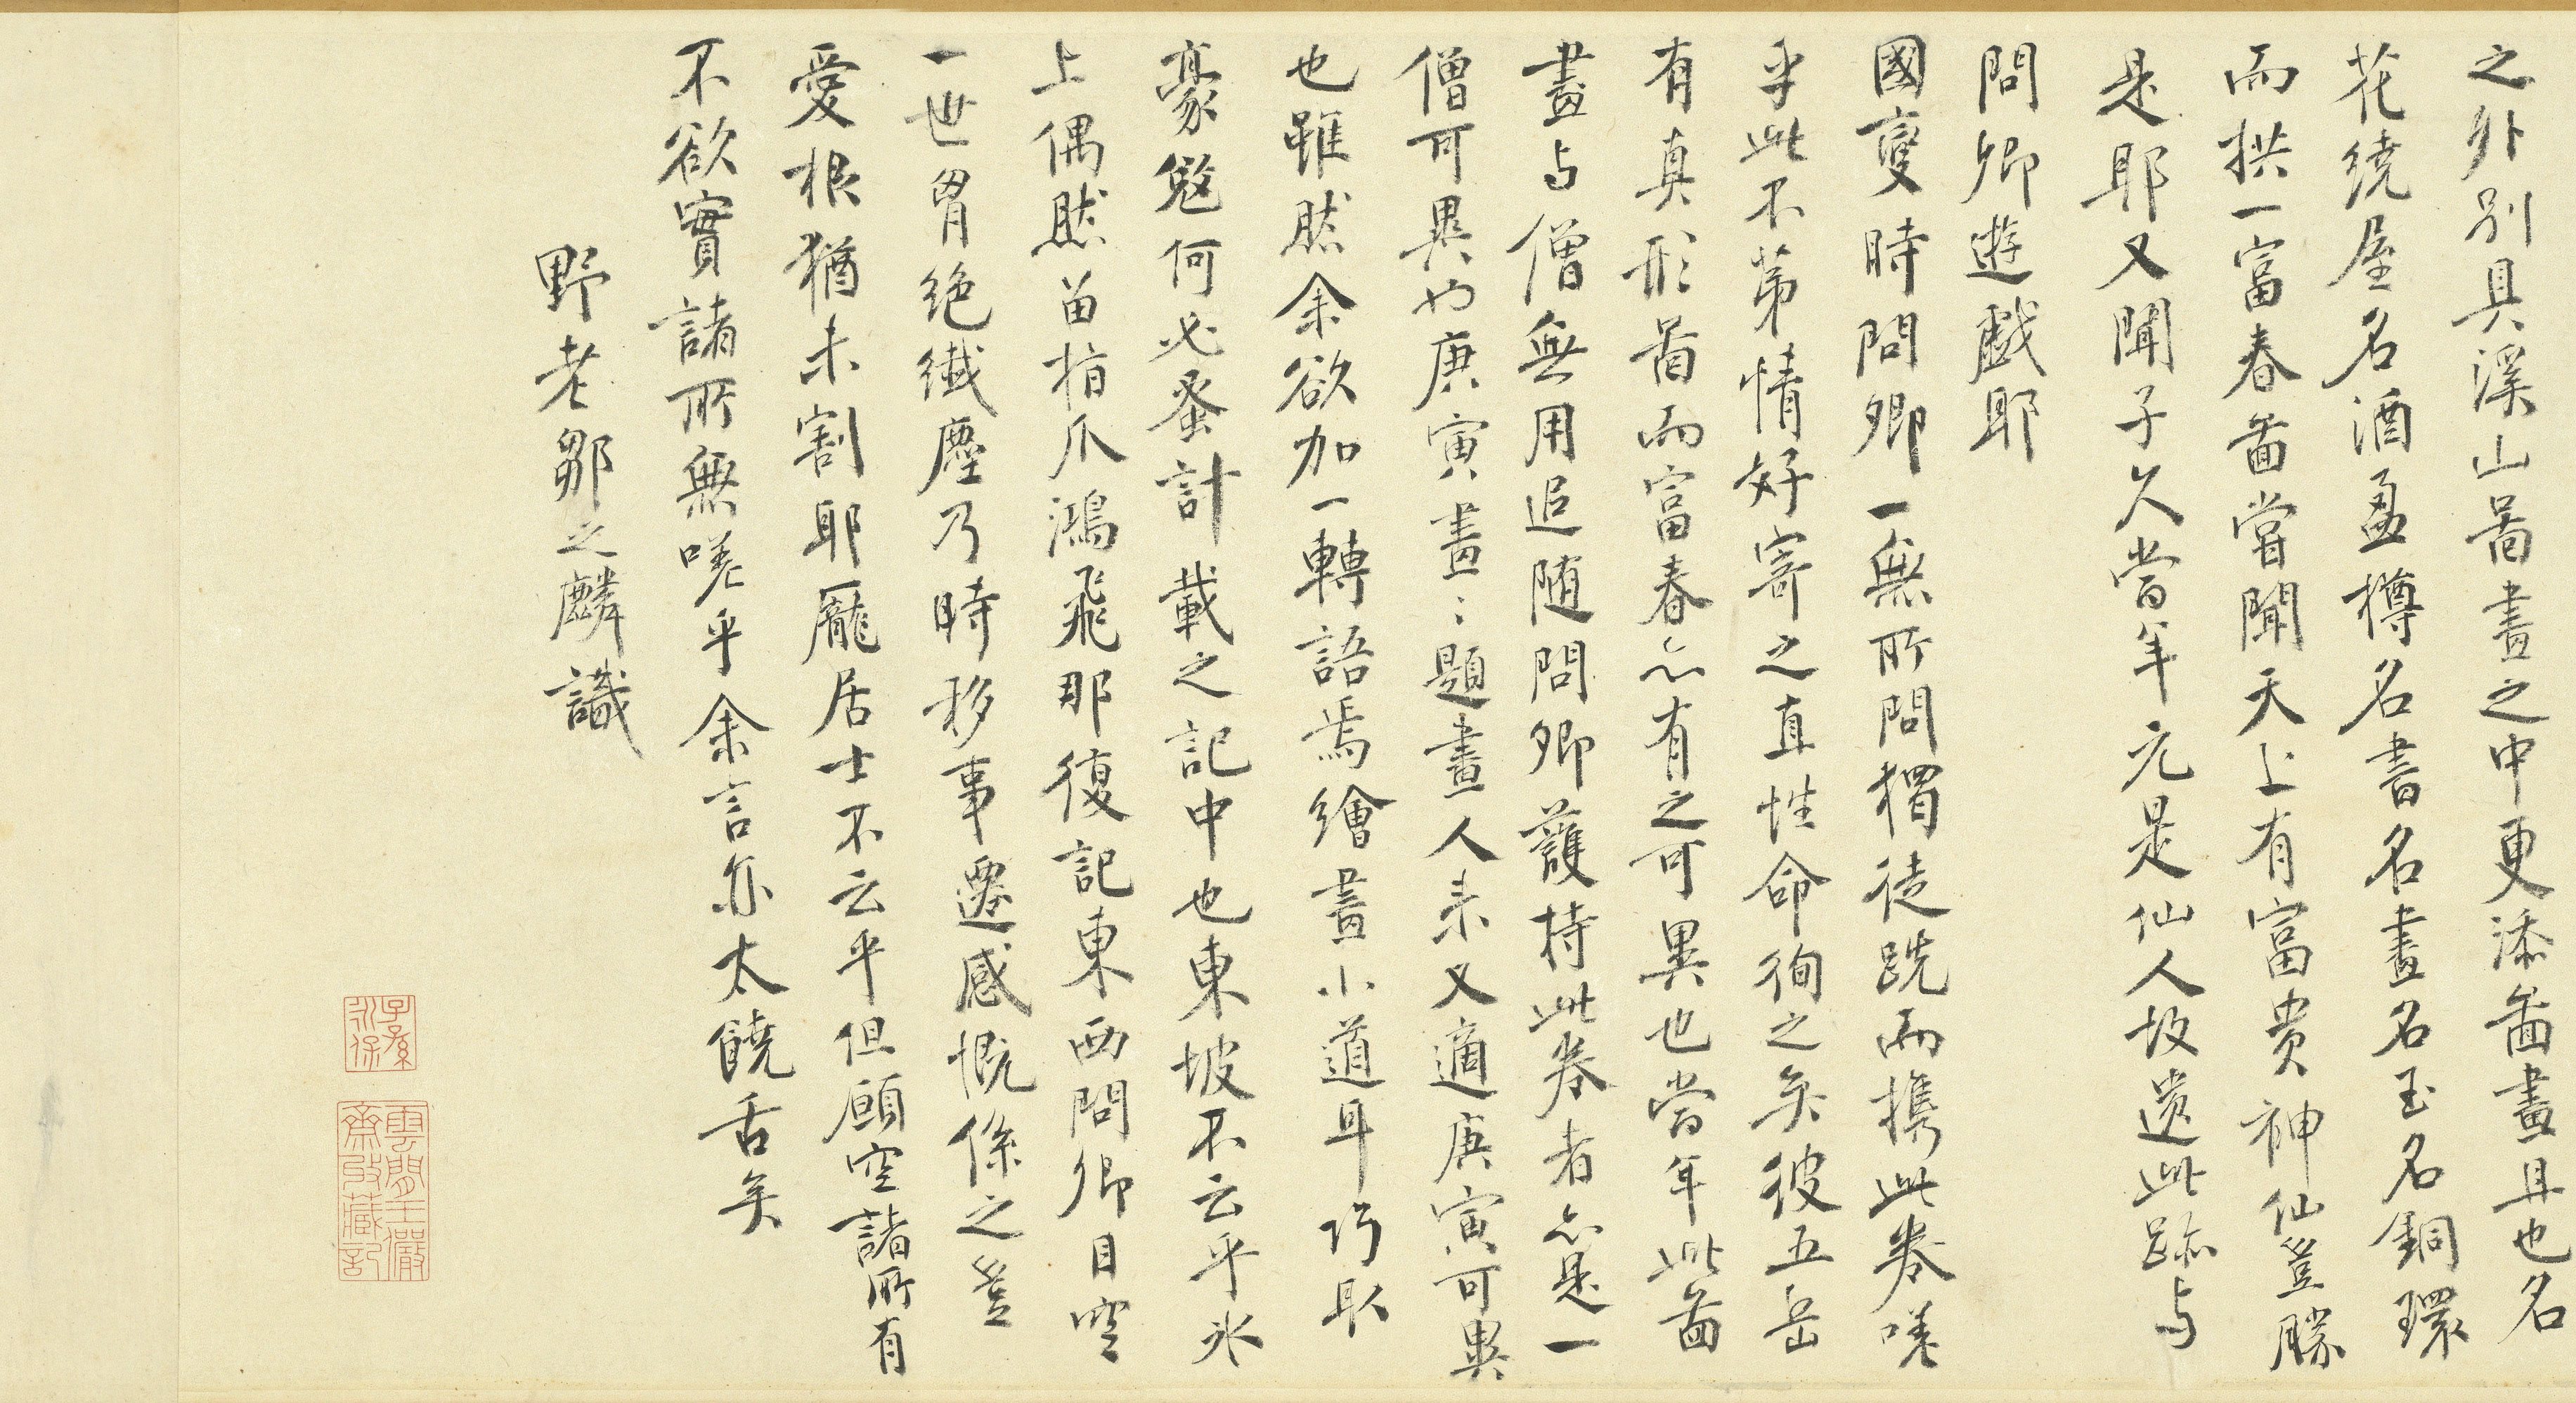 之外別具溪山啚畫之中更添啚畫且也名
花繞屋名酒盈樽名書名畫名玉名銅環
而拱一富春啚嘗聞天上有富貴神仙豈勝
是耶又聞子久當年元是仙人故遺此跡与
問卿遊戲耶
國變時問卿一無所問獨徒跣而携此卷嗟
乎此不第情好寄之直性命徇之矣彼五岳
有真形啚而富春亦有之可異也當年此啚
畫与僧無用追随問卿護持此卷者亦是一
僧可異也庚寅畫〻題畫人来又適庚寅可異
也雖然余欲加一轉語焉繪畫小道耳巧取
豪奪何必蚤計載之記中也東坡不云乎氷
上偶然留指爪鴻飛那復記東西問卿目空
一世胷絶纎塵乃時移事遷感慨係之豈
愛根猶未割耶龐居士不云乎但願空諸所有
不欲實諸所無嗟乎余言亦太饒舌矣
野老鄒之麟識
子孫
永保
雲間王儼
齋収藏記